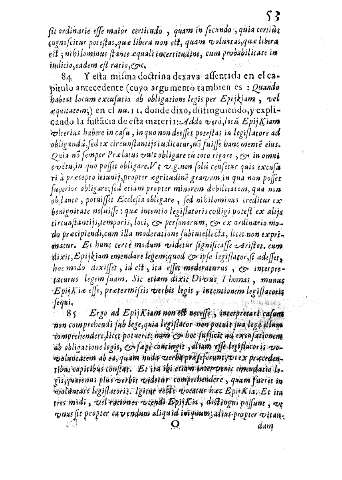 53
sic ordinarie esse maior certitudo, quam in secundo, quia certius
cognoscitur potestas, quæ libera non est, quam voluntas, quæ libera
est; nihilominus stante æquali incertitudine, cum probabilitate in
iudicio, eadem est ratio, &c.
84. Y esta misma doctrina dexava assentada en el ca-
pitulo antecedente (cuyo argumento tambien es: Quando
habeat locum excusatio ab obligatione legis per Epijkiam, vel
æquitatem,) en el nu. 11. donde dixo, distinguiendo, y expli-
cando la sustācia de esta materia: Addo verò, licet Epijkiam
vberius habere in casu, in quo non deesset potestas in legislatore ad
obligandū, sed ex circunstantijs iudicatur, nō fuisse hanc mentē eius.
Quia nō semper Prælatus vult obligare in toto rigore, & in omni
evētu, in quo posset obligare. V. g. non solū censetur quis excusa-
ri à præcepto ieiunij, propter ægritudinē gravem in qua non posset
superior obligare: sed etiam propter minorem debilitatem, quā non
obstante, potuisset Ecclesia obligare, sed nihilominus creditur ex
benignitate noluisse: quæ intentio legislatoris colligi potest ex alijs
circunstantijs, temporis, loci, & personarum: & ex ordinario mo-
do præcipiendi, cum illa moderatione subintellecta, licet non expri-
matur. Et hunc certè modum videtur significasse Aristot. cum
dixit, Epijkiam emendare legem; quod & ipse legislator, si adesset,
hoc modo dixisset, id est, ita esset moderaturus, & interpre-
taturus legem suam. Sic etiam dixit Divus Thomas, munus
Epijkiæ esse, prætermissis verbis legis, intentionem legislatoris
sequi.
85 Ergo ad Epijkiam non est necesse, interpretari casum
non comprehendi sub lege, quia legislator non potuit sua lege illum
comprehendere, licet potuerit;
ab obligatione legis, & legislatoris vo-
luntatem ab ea, quam verba præseferunt, vt ex præceden-
tibus capitibus constat. Et ita ibi etiam intervenit emendatio le-
gis, quatenus plus verbis videtur comprehendere, quam fuerit in
voluntate legislatoris. Igitur vocatur hæc Epijkia. Et ita
tres modi, vel rationes vtendi Epijkia, distingui possunt, v-
nus est propter cavendum aliquid iniquum; alius propter vitan-
Q dam